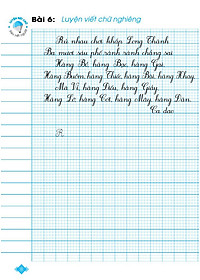 Bài 6: Luyện viết chữ nghiêng
Rủ nhau chơi khắp Long Thành
Ba mươi sáu phố rành rành chẳng sai
Hàng Bồ, hàng Bạc, hàng Gai,
Hàng Buồm, hàng Thiếc, hàng Bài, hàng Khay,
Mã Vĩ, hàng Điếu, hàng Giày,
Hàng Lờ, hàng Cót, hàng Mây, hàng Đàn.
Ca dao
R